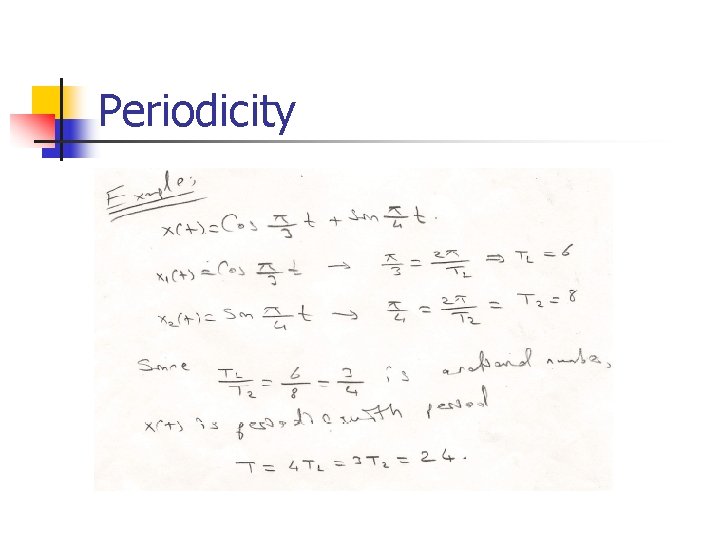 Periodicity
Example:
x(t)=Cos π/3 t + Sin π/4 t.
x₁(t)=Cos π/3 t → π/3 = 2π/T₁ ⇒ T₁=6
x₂(t)= Sin π/4 t → π/4 = 2π/T₂ = T₂=8
Since T₁/T₂ = 6/8 = 3/4 is a rational number,
x(t) is periodic with period
T = 4T₁ = 3T₂ = 24.